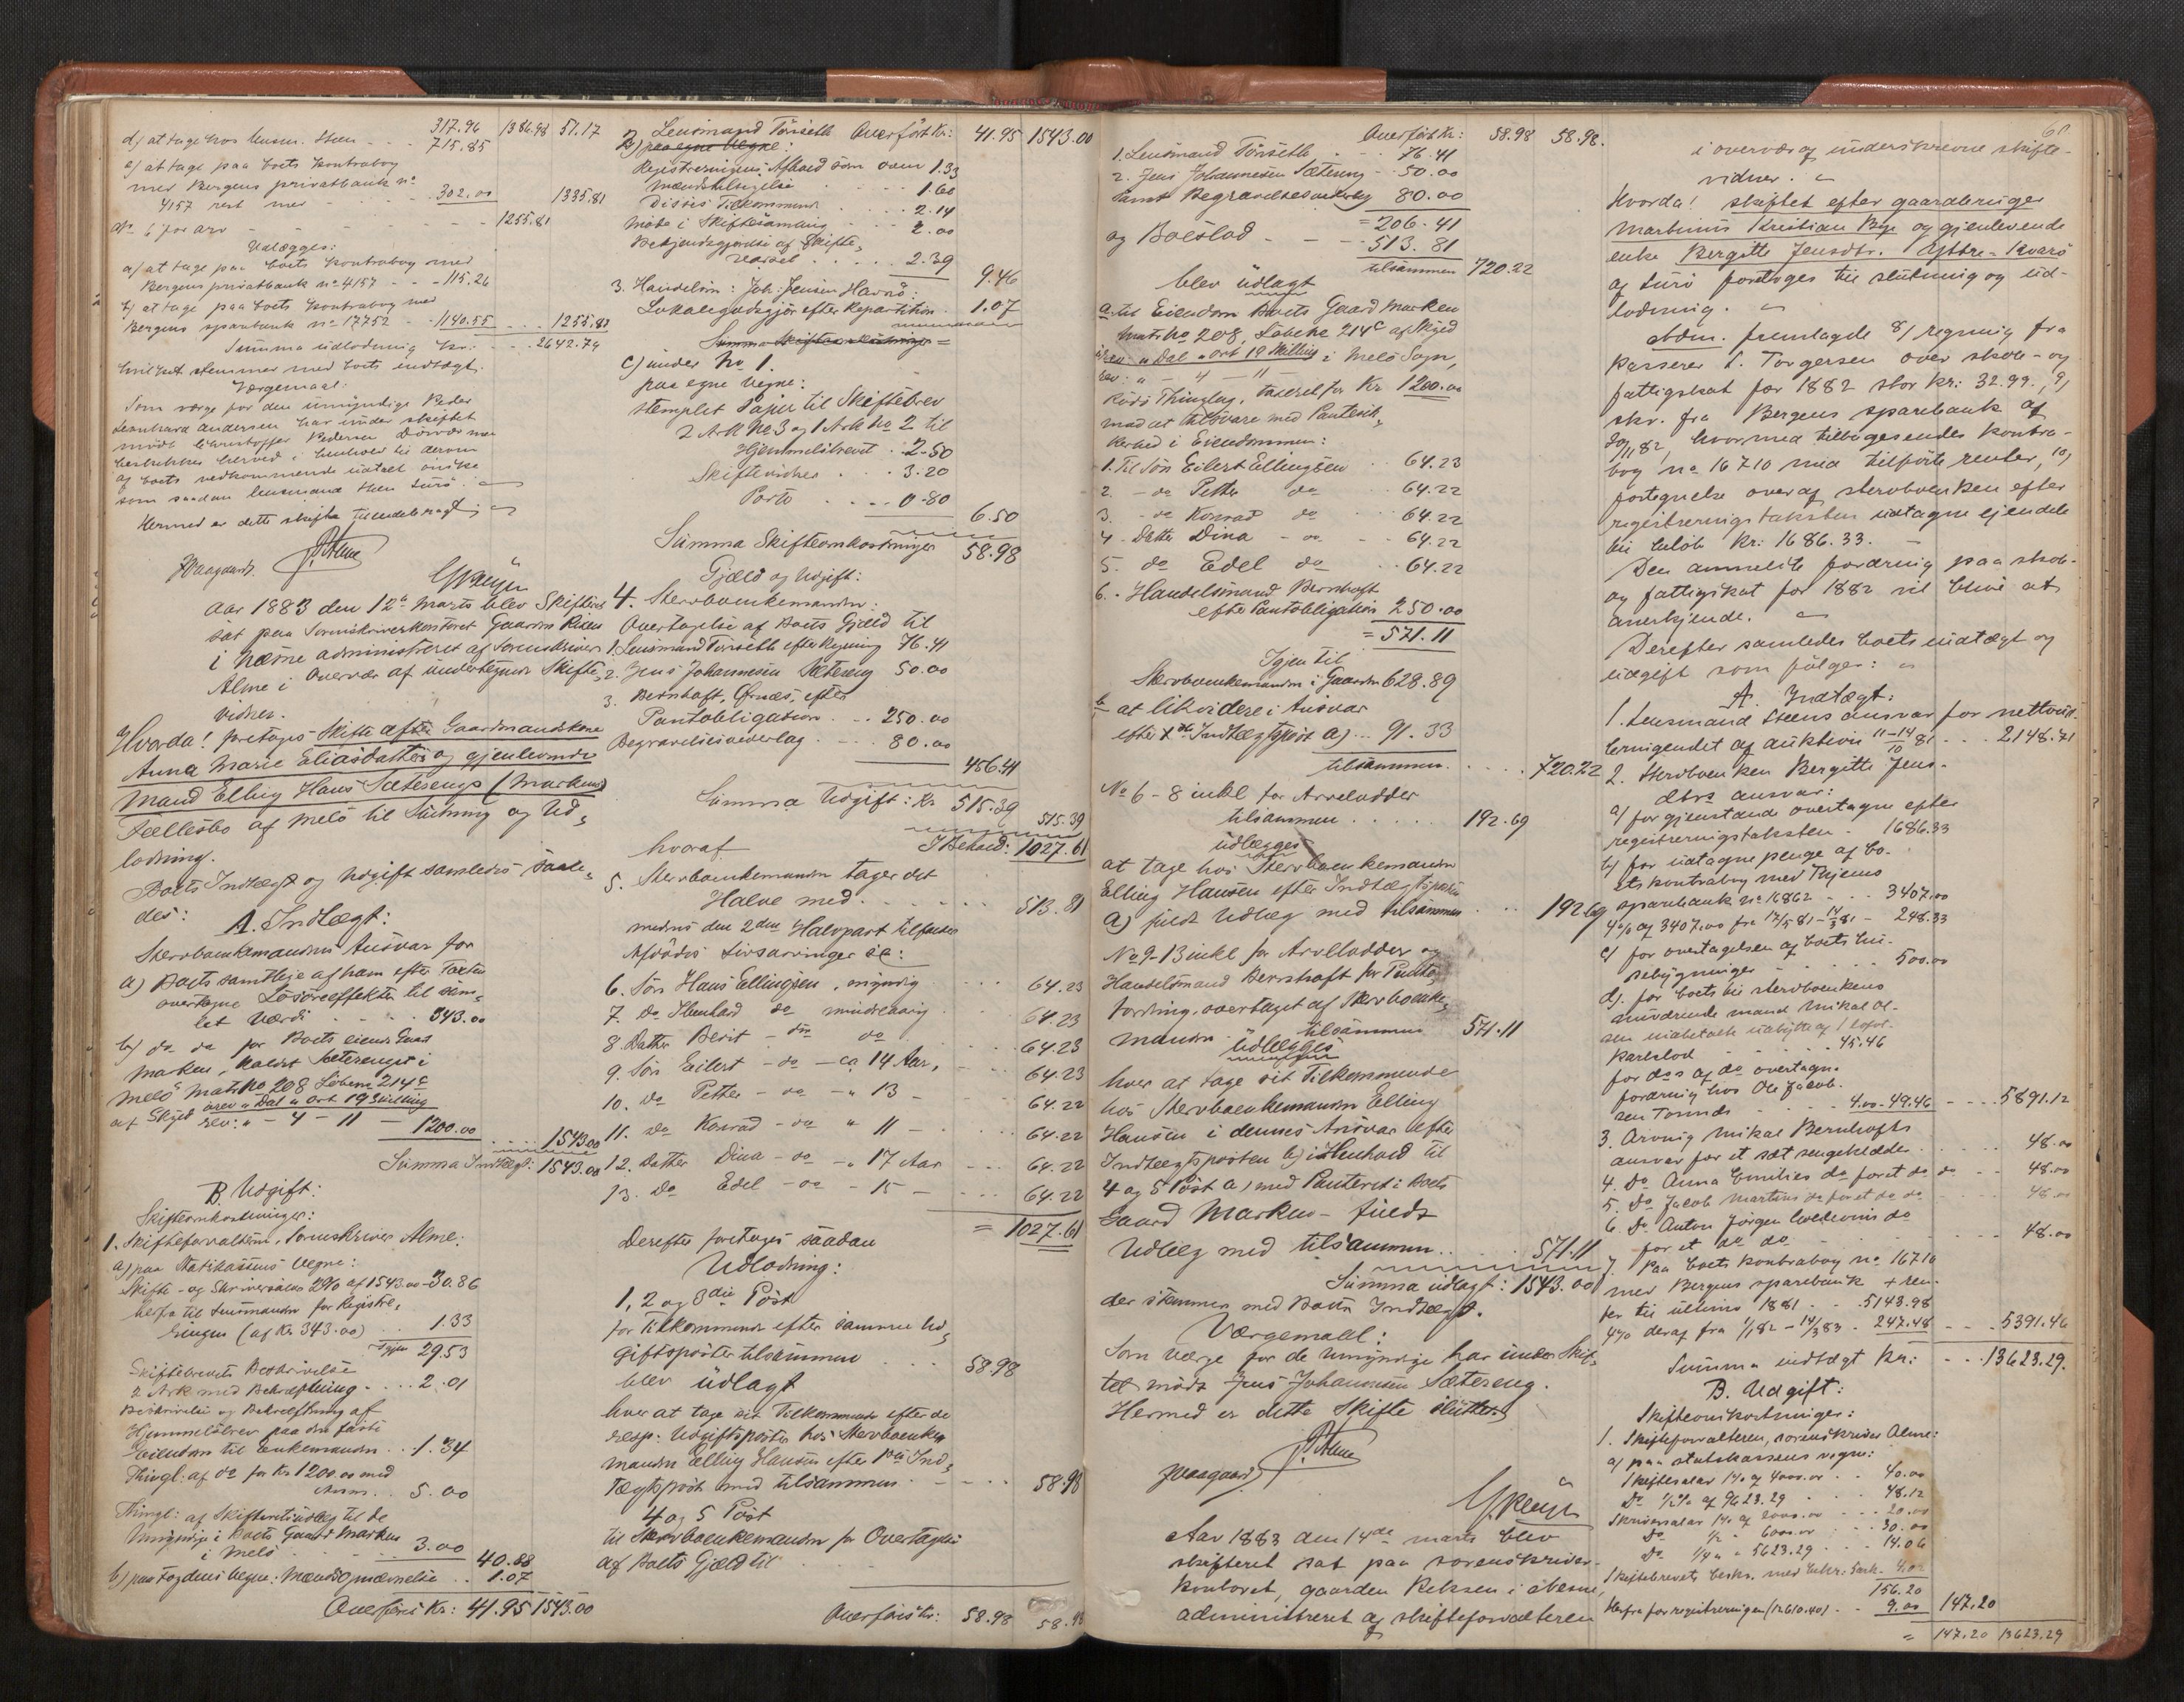 317.96 1386.98 57.17
d) at tage hos lensm. Steen - - 715.85
e) at tage paa boets kontrabog
med Bergens privatbank no
4157 rest mer - - - 302.00 1335.81
No 6 for arv - - - - - 1255.81
Udlægges:
a) at tage paa boets kontrabog med
Bergens privatbank no 4157 - - 115.26
b) at tage paa boets kontrabog med
Bergens sparebank no 17752 - - 1140.55 - - 1255.81
Summa udlodning Kr: - - 2642.79
hvilket stemmer med boets indtægt.
Værgemaal:
Som værge for den umyndige Peder
Leonhard Andersen har under skiftet
mødt Christoffer Pedersen
beskikkes herved i henhold til derom
af boets vedkommende udtalt ønske
som saadan lensmand Steen Lurö.
Hermed er dette skifte tilendebragt
JWaagaard. Alme
Aar 1883 den 12te Marts blev Skifteret
sat paa Sorenskriverkontoret Gaarden Riksen
i Næsne administreret af Sorenskriver
Alme i Overvær af undertegnede Skifte-
vidner.
Hvorda! foretoges Skifte efter Gaardmandskone
Anna Marie Eliasdatter og gjenlevende
Mand Elling Hans Sæterengs (Markens)
Fællesbo af Melö til Slutning og Ud-
lodning.
Boets Indtægt og Udgift samledes saale-
des:
A. Indtægt:
Stervboenkemandens Ansvar for
a) Boets samtlige af ham efter Taxten
overtagne Lösöreeffekter til sam-
let Værdi - - - 343.00
b) do do for Boets eiende Gaard
Marken, kaldet Sæterenget i
Melö Matr. No 208 Löbenr 214c
af Skyld urev. " Dal " ort 19 Skilling
rev: " - 4 - 11 - 1200.00 - - 1543.00
Summa Indtægt: 1543.00
B. Udgift:
Skifteomkostninger:
1. Skifteforvalteren, Sorenskriver Alme:
a) paa Statskassens Vegne:
Skifte- og Skriversalær 2% af 1543.00 - 30.86
herfra til Lensmanden for Registre-
ringen (af Kr 343.00) - - 1.33
Igjen 29.53
Skiftebrevets Beskrivelse
2 Ark med Bekræftning - - 2.01
Beskrivelse og Bekræftning af
Hjemmelsbrev paa den faste
Eiendom til Enkemanden - - 1.34
Thingl: af do for Kr 1200.00 med
Anm. - - 5.00
Thingl: af Skifteretsudlæg til de
Umyndige i Boets Gaard Marken
i Melö - - - 3.00 40.88
b) paa Fogdens Vegne: Mændsopnævnelse - - 1.07
Overföres Kr: 41.95 1543.00
2. Lensmand Tönseth Overfört Kr: 41.95 1543.00
b) paa egne Vegne:
Registreringens Afhold som oven 1.33
Mændstilsigelse - - 1.60
Disses Tilkommende - - 2.14
Möde i Skiftesamling - - 2.00
Bekjendtgjörelse af Skifte-
varsel - - - 2.39 9.46
3. Handelsm: Joh: Jensen Havnö:
Lokalegodtgjör efter Repartition - 1.07
Summa Skifteomkostninger =
c) under No 1.
paa egne Vegne:
stemplet Papir til Skiftebrev
2 Ark No 3 og 1 Ark No 2 til
Hjemmelsbrevet - 2.50
Skiftevidner - - 3.20
Porto - - - 0.80 6.50
Summa Skifteomkostninger 58.98
Gjæld og Udgift:
4. Stervboenkemanden:
Overtagelse af Boets Gjæld til
1. Lensmand Tönseth efter Regning 76.41
2. Jens Johannesen Sætereng 50.00
3. Bernhoft, Ørnes, efter
Pantobligation - - 250.00
Begravelsesvederlag - - 80.00
456.41
Summa Udgift: Kr 515.39 515.39
hvoraf I Behold: 1027.61
5. Stervboenkemanden tager det
Halve med - - - 513.81
medens den 2den Halvpart tilfalder
Afdödes Livsarvinger sc:
6. Sön Hans Ellingsen, myndig - - 64.23
7. Do Ibenhard do mindreaarig - - 64.23
8. Datter Berit - do do - - 64.23
9. Sön Eilert - do - ca 14 Aar, - - 64.23
10. Do Petter - do - " 13 - - - 64.22
11. Do Konrad - do " 11 - - - 64.22
12. Datter Dina - do - " 17 Aar - - 64.22
13. Do Edel - do - 15 - - - 64.22
= 1027.61
Derefter foretoges saadan
Udlodning:
1, 2 og 3die Post
for Tilkommende efter samme Ud-
giftsposter tilsammen - - 58.98
blev udlagt
hver at tage sit Tilkommende efter de
resp: Udgiftsposter hos Stervboenke-
manden Elling Hansen efter 1ste Ind-
tægtspost med tilsammen - - - 58.98
4 og 5 Post
til Stervboenkemanden for Overtagelse
af Boets Gjæld til
Overföres Kr: 58.98 58.98
Overfört Kr: 58.98 58.98.
1. Lensmand Tönseth - - 76.41
2. Jens Johannesen Sætereng - - 50.00
samt Begravelsesvederlag 80.00
= 206.41
og Boeslod - - - 513.81
tilsammen 720.22
blev udlagt
a. til Eiendom Boets Gaard Marken
Matr. No 208, Löbene 214c af Skyld
urev: " Dal " ort 19 Skilling i Melö Sogn,
rev: " - 4 - 11 -
Rödö Thinglag, taxeret for Kr 1200.00
mod at tilsvare med Pantesik-
kerhed i Eiendommen:
1. Til Sön Eilert Ellingsen - - 64.23
2. - do Petter do - 64.22
3. - do Konrad do - - 64.22
4. Datter Dina - do - - 64.22
5. do Edel do - - 64.22
6. Handelsmand Bernhoft
efter Pantobligation 250.00
= 571.11
Igjen til
Stervboenkemanden i Gaarden 628.89
b at likvidere i Ansvar
efter 1ste Indtægtspost a) - - 91.33
tilsammen - - - 720.22
No 6 - 8 inkl for Arvelodder
tilsammen - - - 192.69
udlægges
at tage hos Stervboenkemanden
Elling Hansen efter Indtægtsposten
a) fuldt Udlæg med tilsammen - - 192.69
No 9-13 inkl for Arvelodder og
Handelsmand Bernhoft for Pante-
fordring, overtaget af Stervboenke-
manden tilsammen 571.11
udlægges
hver at tage sit Tilkommende
hos Stervboenkemanden Elling
Hansen i dennes Ansvar efter
Indtægtsposten b) i Henhold til
4 og 5 Post a) med Panteret i Boets
Gaard Marken - fuldt
Udlæg med tilsammen - - 571.11
Summa udlagt: 1543.00
der stemmer med Boets Indtægt.
Værgemaal:
Som Værge for de Umyndige har under Skif-
tet mödt Jens Johannesen Sætereng.
Hermed er dette Skifte sluttet.
JWaagaard Alme
Aar 1883 den 14de marts blev
skifteret sat paa sorenskriver-
kontoret, gaarden Reksen i Næsne,
administreret af skifteforvalteren
i overvær af underskrevne skifte-
vidner.
Hvorda! skiftet efter gaardbruger
Martinus Kristian Bye og gjenlevende
enke Bergitte Jensdtr. Kvarö
af Lurö foretoges til slutning og ud-
lodning.
Adm. fremlagde 8) regning fra
kasserer L. Torgersen over skole- og
fattigskat for 1882 stor kr: 32.99., 9)
skr. fra Bergens sparebank af
20/11 82, hvormed tilbagesendes kontra-
bog no 16710 med tilförte renter, 10)
fortegnelse over af stervboenken efter
registreringstaksten udtagne ejendele
til beløb kr: 1686.33.
Den anmeldte fordring paa skole-
og fattigskat for 1882 vil blive at
anerkjende.
Derefter samledes boets indtægt og
udgift som fölger:
A. Indtægt:
1. Lensmand Steens ansvar for netto-
beringendet af auktion 11-14/10 81 - - 2148.71
2. Stervboenken Bergitte Jens-
dtrs ansvar:
a) for gjenstande overtagne efter
registreringstaksten - 1686.33
b) for udtagne penge af bo-
ets kontrabog med Thjems
sparebank no 16862 - - 3407.00
4% af 3407.00 fra - 248.33
c) for overtagelsen af boets hu-
sebygninger - - - 500.00
d) for boets til stervboenkens
nuværende mand Mikal Ol-
sen udbetalte udbytte af 1
- - - 45.46
for dos af do overtagne
fordring hos Ole Jakob-
sen - - 4.00 - 49.46 - - 5891.12
3. Arving Mikal Bernhofts
ansvar for et sæt sengeklæder - - 48.00
4. Do Anna Emilies do for et do do - - 48.00
5. Do Jakob Martins do for et do do - - 48.00
6. Do Anton Jörgen do
for et do do - - 48.00
7. Paa boets kontrabog no 16710
med Bergens sparebank + ren-
ter til ultimo 1881 - - 5143.98
4% deraf fra 1/1 82 - 14/3 83 - 247.48 - - 5391.46
Summa indtægt Kr: - - 13623.29.
B. Udgift:
Skifteomkostninger:
1. Skifteforvalteren, sorenskriver Alme:
a) paa statskassens vegne:
Skiftesalær 1% af 4000.00 - - 40.00
Do 1/2% af 9623.29 - - 48.12
Skriversalær 1% af 2000.00 - - 20.00
Do 1/2 " 6000.00 - - 30.00
Do 1/4 " " 5623.29 - - 14.06
Skiftebrevets beskr. med bekr: 5 ark - 4.02
156.20
Herfra for registreringen (12610.40) - - 9.00 147.20
= 147.20 13623.29